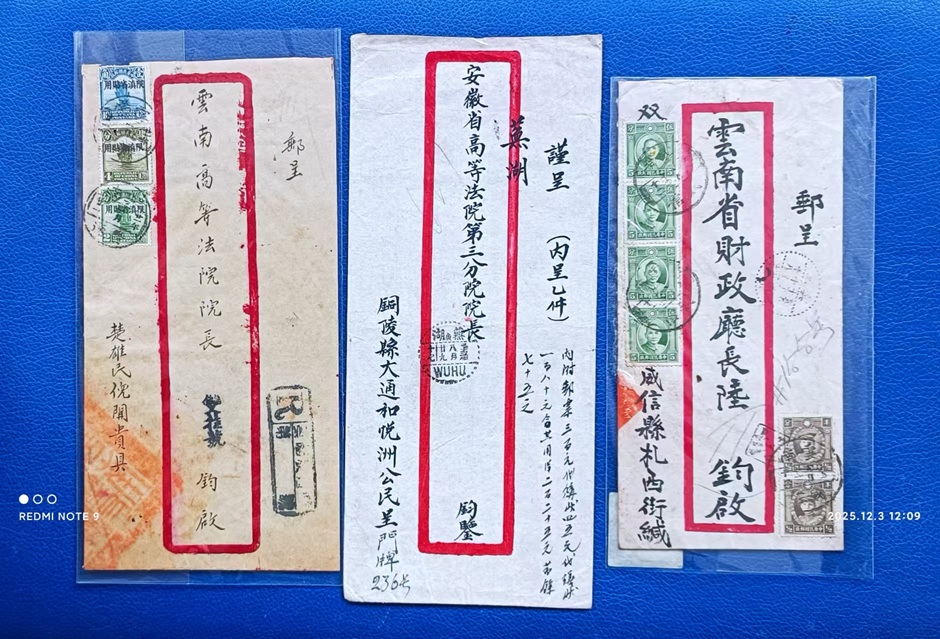 郵呈
雲南高等法院院長 鈞啟
雙掛號
楚雄民倪開貴具
限滇省貼用
限滇省貼用
限滇省貼用
R
謹呈 (內呈乙件)
蕪湖
安徽省高等法院第三分院院長 鈞鑒
銅陵縣大通和悅洲公民呈 門牌
236号
七十五元
蕪湖
WUHU
郵呈
雲南省財政廳長陸 鈞啟
双
威信縣札西街緘
5
5
5
5
REDMI NOTE 9
2025.12.3 12:09